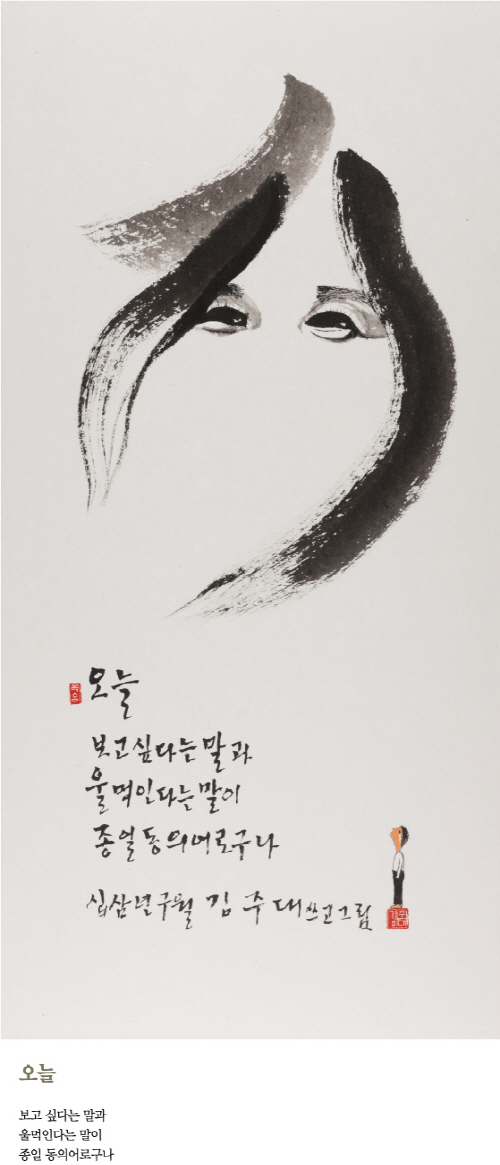 오늘
보고싶다는 말과
울먹인다는 말이
종일 동의어로구나
십삼년 구월 김주대 쓰고 그림
오늘
보고 싶다는 말과
울먹인다는 말이
종일 동의어로구나